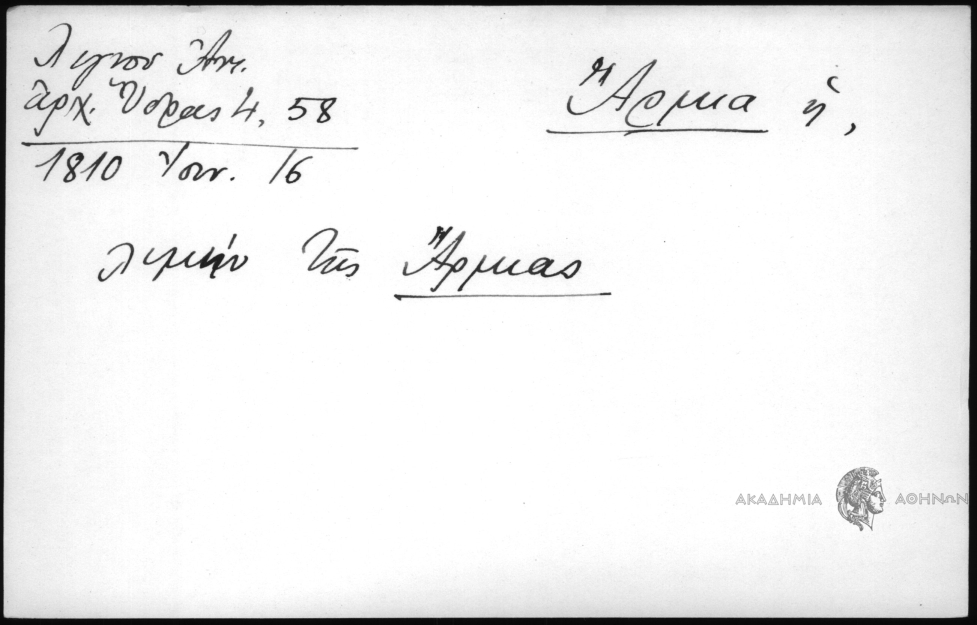 Λιγνου Ἀντ.
ἀρχ. Ὕδρας 4, 58
1810 Ἰουν. 16
Ἄρμια ἡ,
λιμὴν τῆς Ἄρμιας
ΑΚΑΔΗΜΙΑ ΑΘΗΝΩΝ